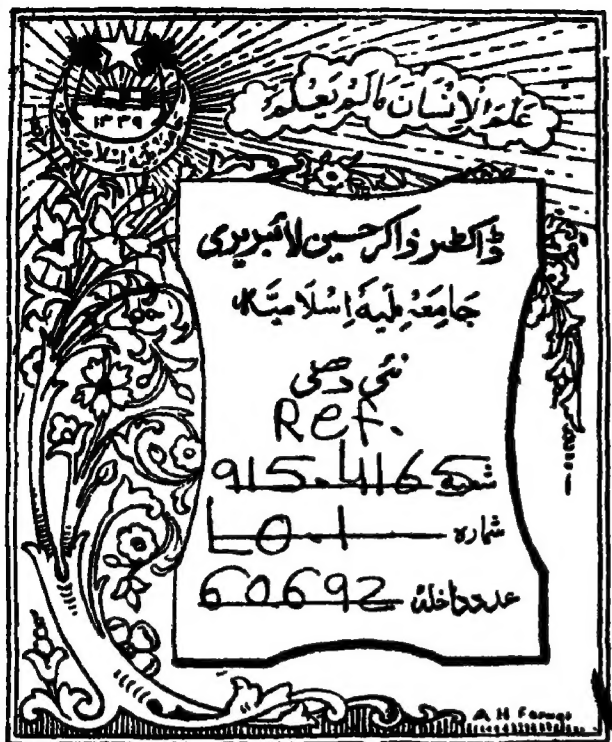 عَلَّمَ الْاِنْسَانَ مَالَمْ يَعْلَمْ
۱۳۳۹
ڈاکٹر ذاکر حسین لائبریری
جَامِعَہ مِلّیَہ اِسْلَامِیَّہ
نئی دھلی
Ref.
915.4165
شمارہ LO.1
عدد داخلہ 60692
A H Faruqi